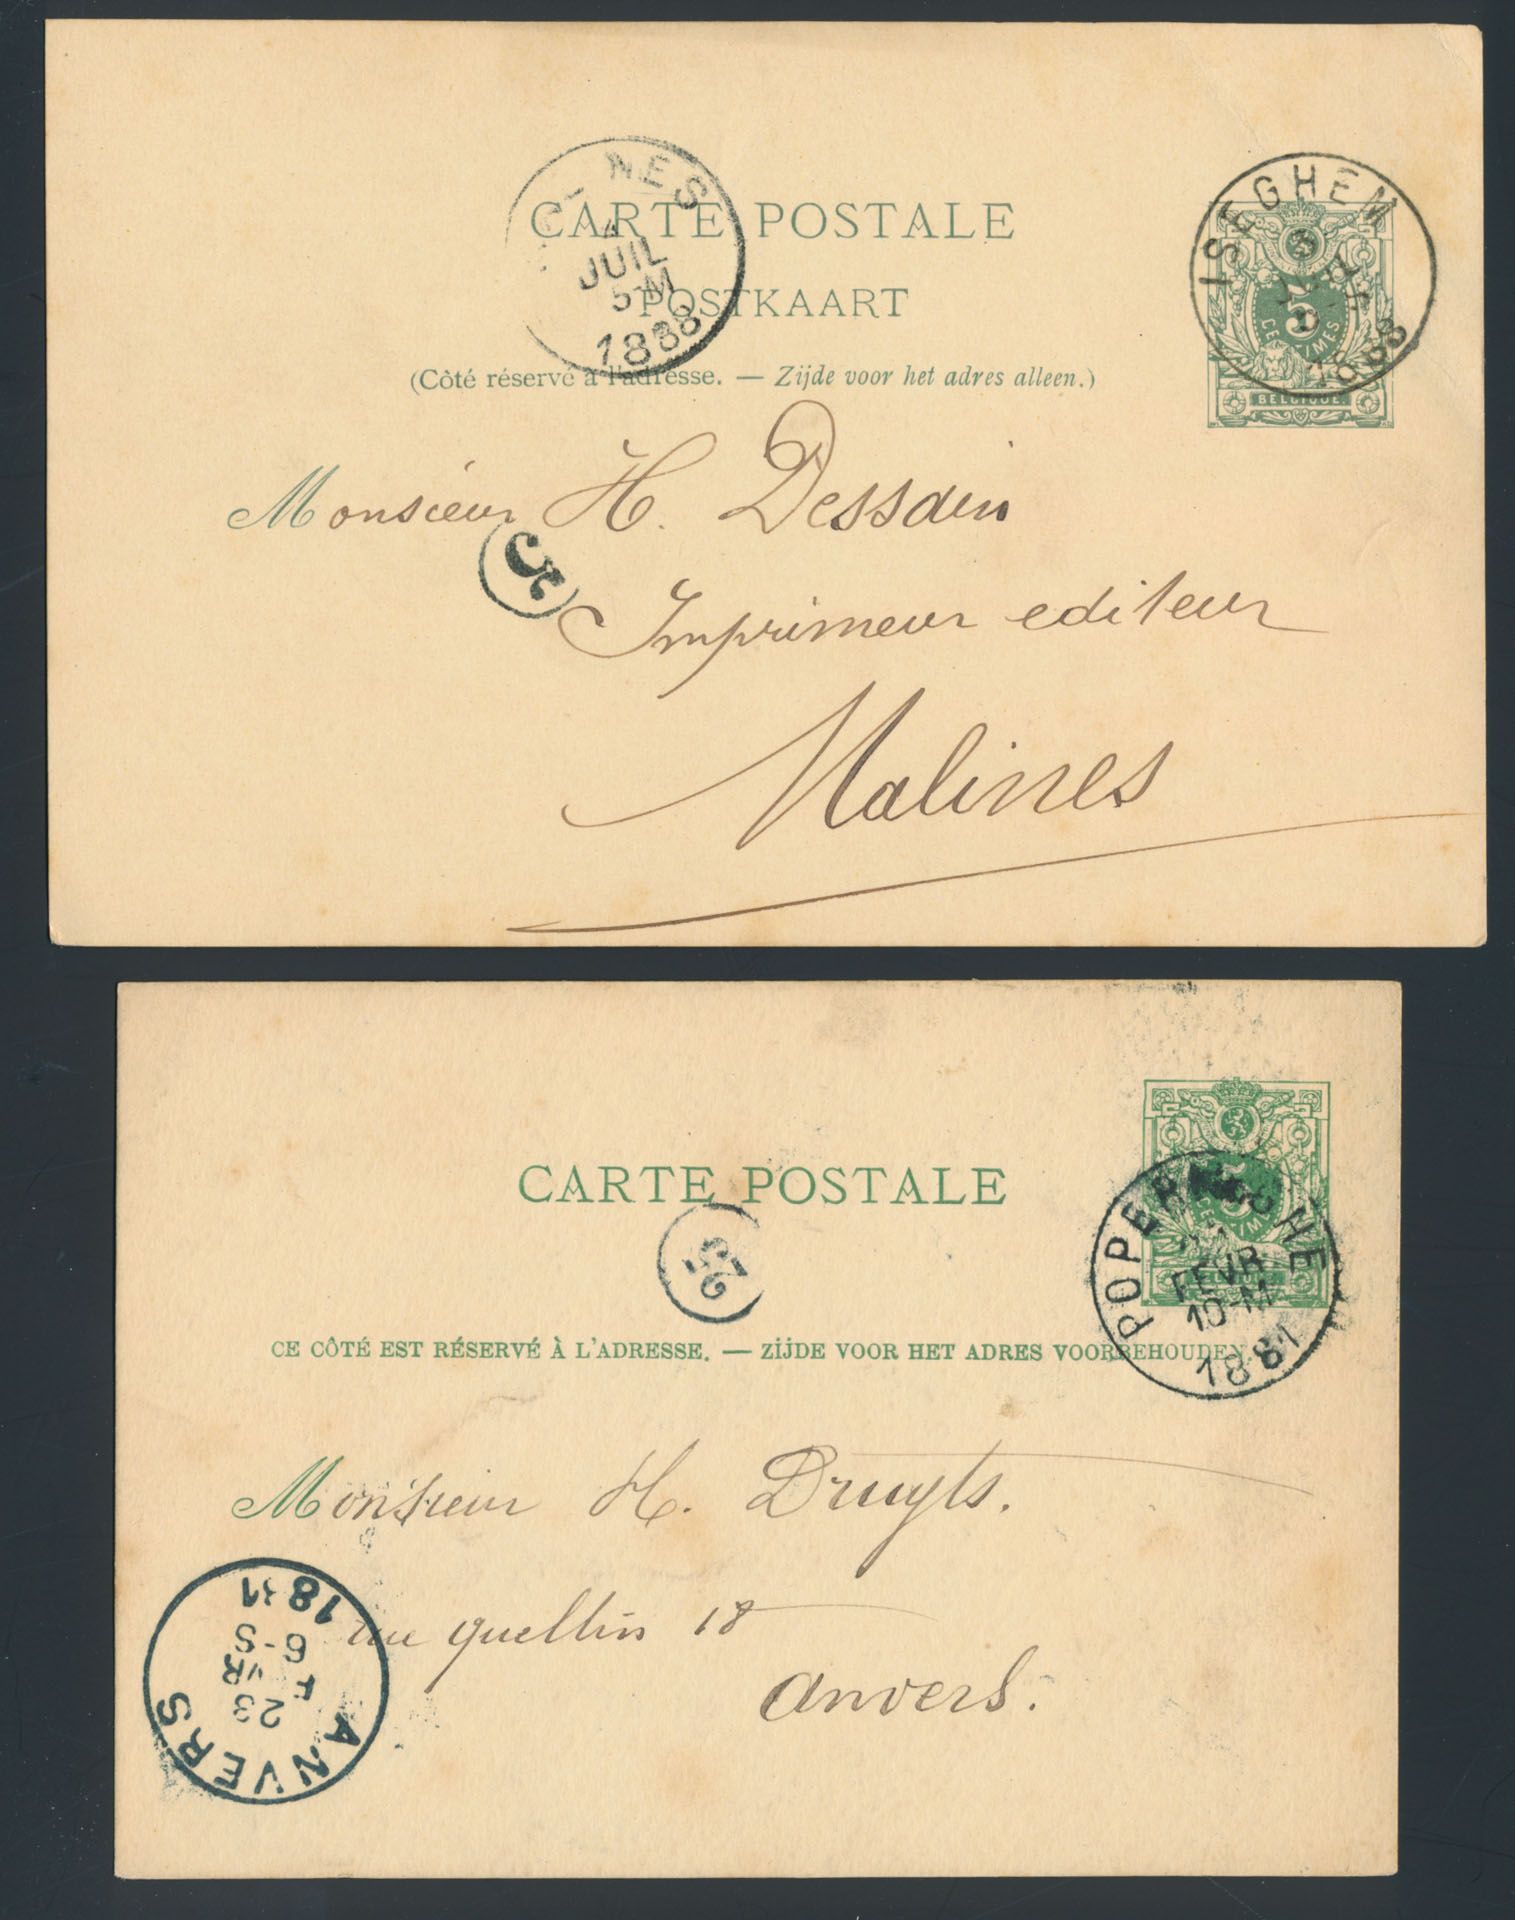 NES
4
JUIL
5-M
1888
CARTE POSTALE
POSTKAART
(Côté réservé à l'adresse. — Zijde voor het adres alleen.)
ISEGHEM
3
JUIL
1888
5
CENTIMES
BELGIQUE.
Monsieur H. Dessain
5
Imprimeur editeur
Malines
CARTE POSTALE
25
POPERINGHE
FEVR
10-M
1881
5
CE COTÉ EST RÉSERVÉ À L'ADRESSE. — ZIJDE VOOR HET ADRES VOORBEHOUDEN.
Monsieur H. Druyts.
rue quellin 18
anvers.
ANVERS
23
6-S
1881